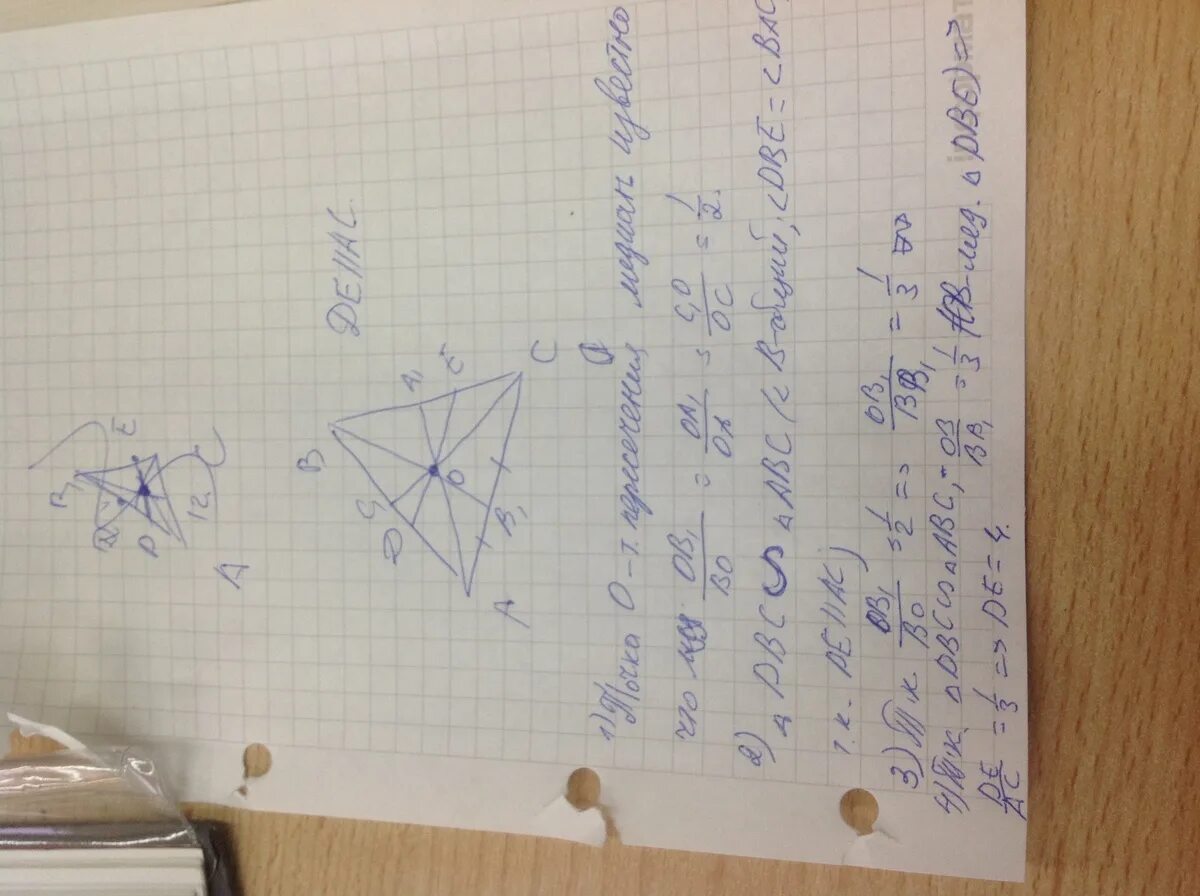 B
D
E
A
12
A
DE||AC
B
C₁
D
A₁
E
O
A
B₁
C
1) Точка O – т. пересечения медиан известно
что OB₁/BO = OA₁/OA = C₁O/OC = 1/2.
2) △ DBC ∽ △ABC (∠B-общий, ∠DBE = ∠BAC,
т.к. DE||AC)
3) Т.к. OB₁/BO = 1/2 => OB₁/BB₁ = 1/3 =>
4) Т.к. △DBC∽△ABC, OB/BB₁ = 1/3 (OB-мед. △DBE) =>
DE/AC = 1/3 => DE = 4.
мат